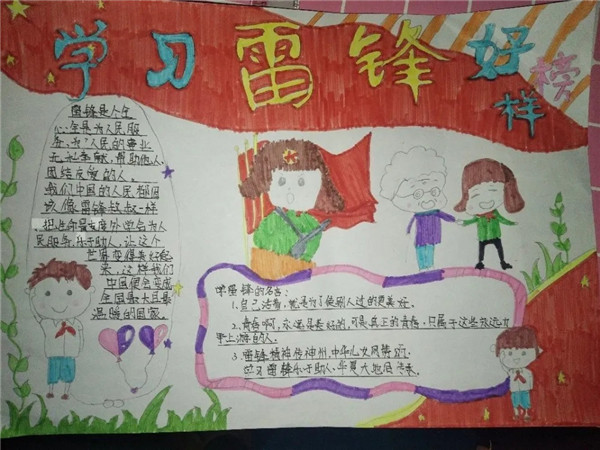 学习雷锋好
榜
样
雷锋是人全
心全是为人民服
务，为了人民的事业
无私奉献，帮助他人，
团结友爱的人。
我们中国的人民都因
该像雷锋叔叔一样
，把 为人
民服务，乐于助人，让这个
世界变得美好起
来，这样我们
中国便会变成
全国最大且最
温暖的国家。
雷锋的名言：
1.自己活着，就是为了使别人过的更美好。
2.青春啊，永远是美好的，可是真正的青春，只属于这些 力
争上游的人。
3.雷锋精神传神州，中华儿女风情
学习雷锋乐于助人，华夏大地 来。